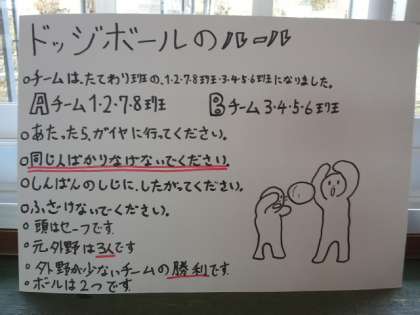 ドッジボールのルール
○チームは、たてわり班の、1・2・7・8班・3・4・5・6班になりました。
Aチーム1・2・7・8班 Bチーム3・4・5・6班
○あたったら、ガイヤに行ってください。
○同じ人ばかりなげないでください。
○しんぱんのしじに、したがってください。
○ふざけないでください。
○頭はセーフです。
○元外野は3人です
○外野が少ないチームの勝利です。
○ボールは2つです